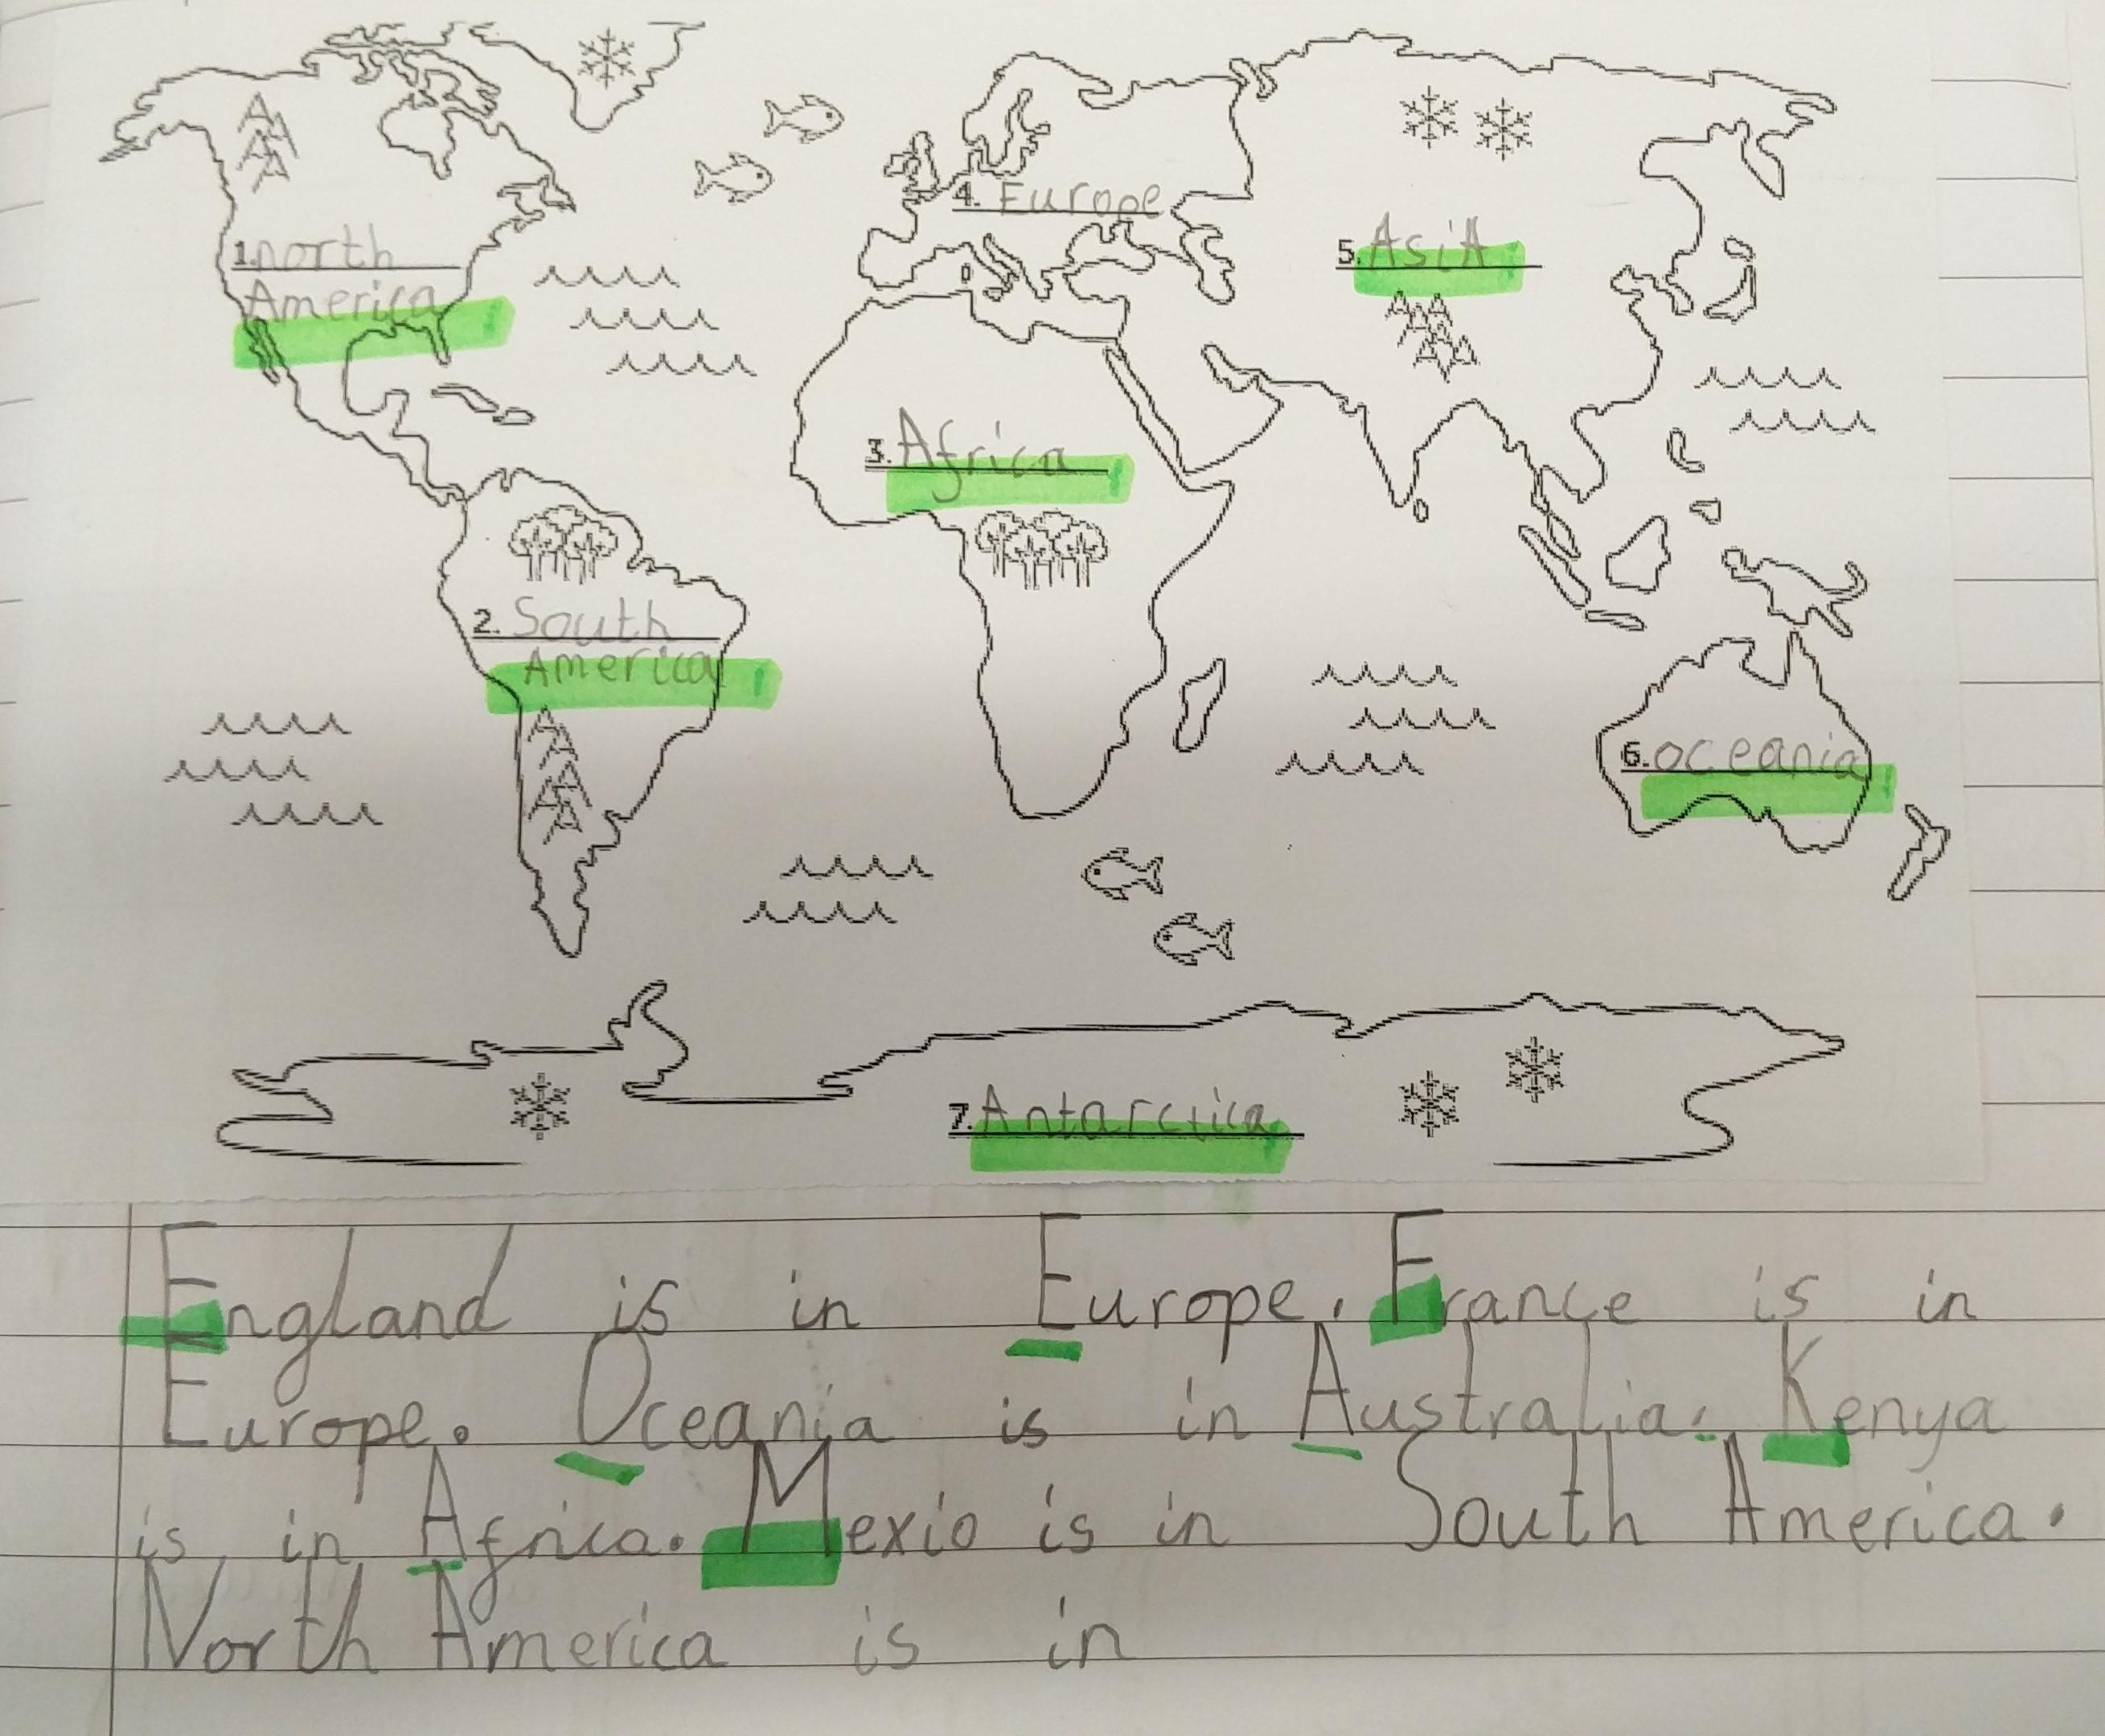 4. Europe
1. north
America
5. AsiA
3. Africa
2. South
America
6. oceania
7. Antarctica
England is in Europe. France is in
Europe. Oceania is in Australia. Kenya
is in Africa. Mexio is in South America.
North America is in